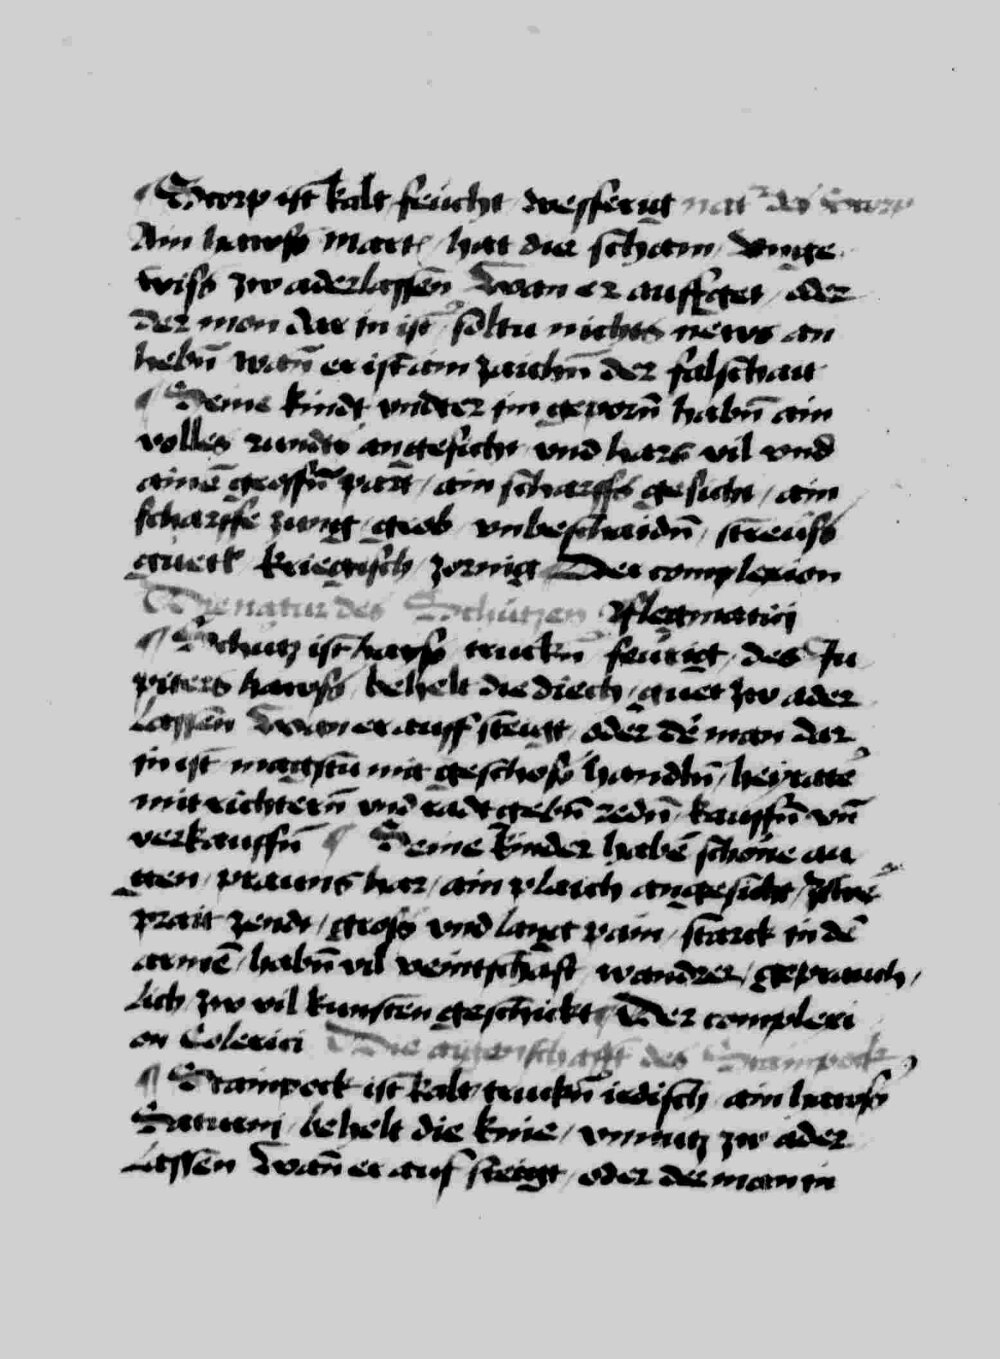 ¶ Scorp ist kalt feücht wesserigt nat des Scorp
Ain hawss Martˢ / hat die scham / Vnge
wiss zw aderlassen Wan er auffget / oder
der mon dar in ist soltu nichts news an
hebn̄ wan̄ er ist ain zaichn̄ der falschait
¶ Seine kindt vndter im geporn̄ habn̄ ain
volles rundts angesicht vnd hars vil vnd
ainē grossn̄ part / ain scharffs gesicht / ain
scharffe zung / grob vnbeschaidn̄ / streüss
kriegisch / zornigt Der complexion
Die natur des Schützen Flegmatici
¶ Schutz ist hayss truckn̄ feürigt / des Ju
piters hawss / behelt die diech / guet zw ader
lassen Wan er auff steigt / oder dē man dar
in ist magstu mit geschoss handln̄ / heyratē
mit richtern̄ vnd radt gebn̄ redn̄ kauffn̄ vn̄
verkauffn̄ ¶ Seine kinder habē schöne au
gen / prauns har / ain plaich angesicht /
prait zendt / gross vnd langt pain / starck in dē
armē / habn̄ vil veintschaft / wandrer / geprauch /
lich / zw vil kunsten geschickt Der complexi
on Colerici Die aigenschafft des Stainpock
¶ Stainpock ist kalt / truckn̄ iedisch / ain hawss
Saturni / behelt die knie / vnnutz zw ader
lassen Wan̄ er auf steigt / oder der man in